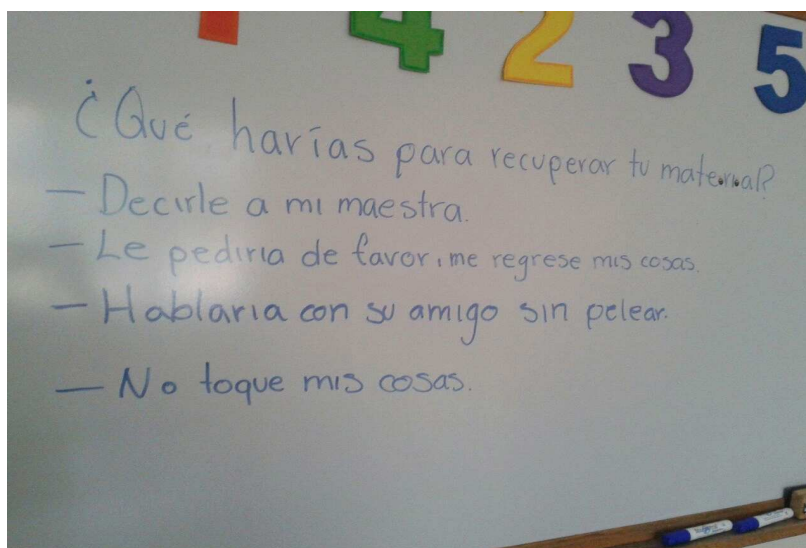 1 4 2 3 5
¿Qué harías para recuperar tu material?
— Decirle a mi maestra.
— Le pediria de favor, me regrese mis cosas.
— Hablaria con su amigo sin pelear.
— No toque mis cosas.